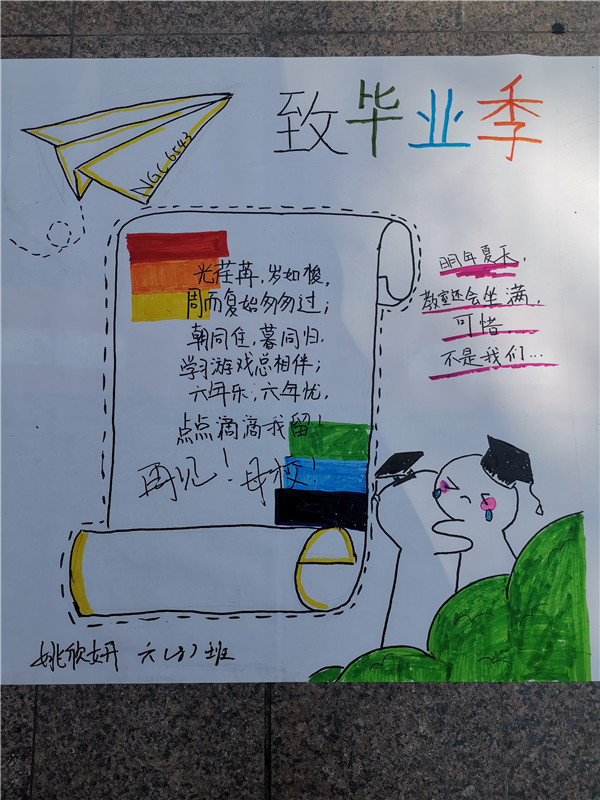 致毕业季
NGC 6543
光荏苒,岁如梭,
周而复始匆匆过;
朝同住,暮同归,
学习游戏总相伴;
六年乐,六年忧,
点点滴滴我留!
再见!母校!
明年夏天,
教室还会坐满,
可惜,
不是我们...
姚欣妍 六(3)班